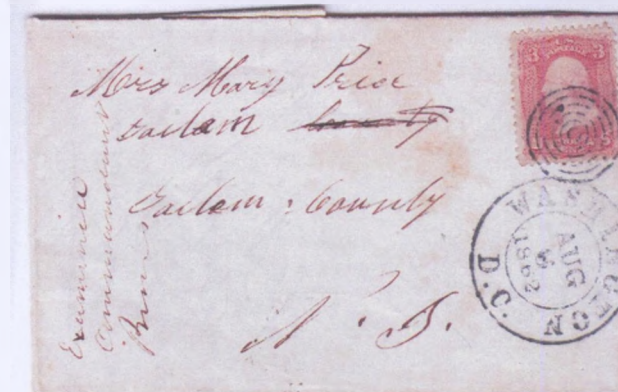 Mrs Mary Price
Saelam County
Saelam County
N. J.
Examined
Commandant
3 3
WASHINGTON
AUG
1862
D.C.